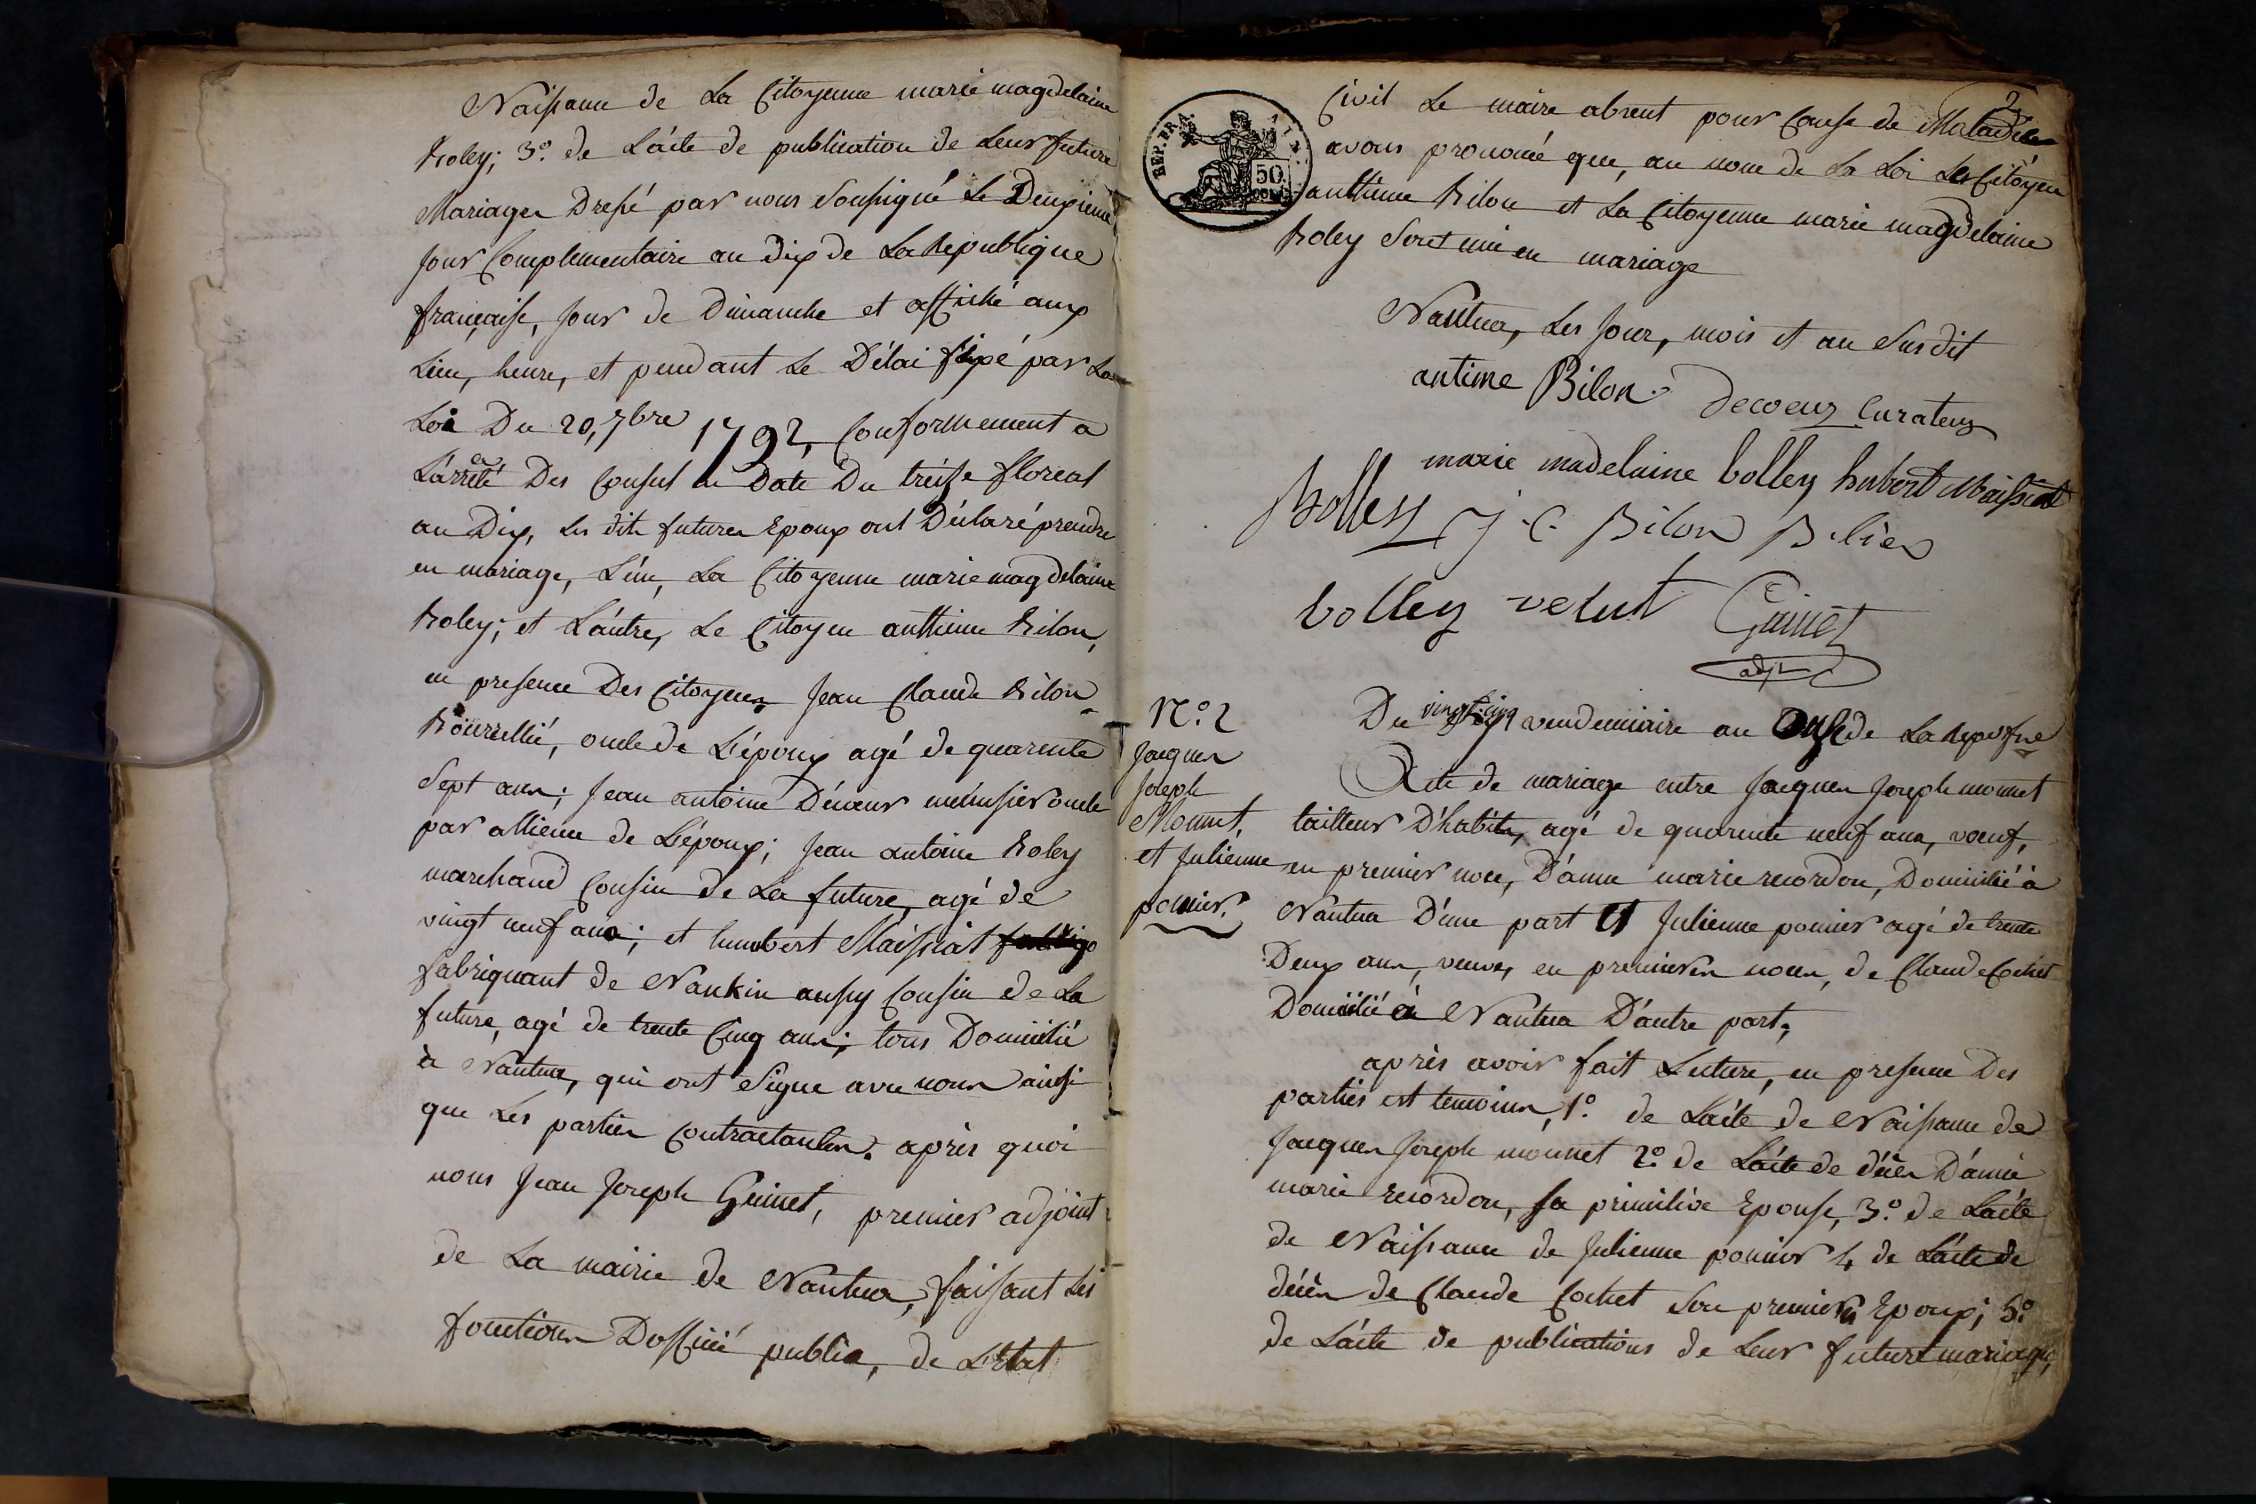 Naissance de La Citoyenne marie magdelaine
Boley; 3º. de L'acte de publication de Leur future
Mariages Dressé par nous Soussigné Le Deuxieme
Jour Complementaire an dix de La Republique
française, Jour de Dimanche et affiché aux
Lieu, heure, et pendant Le Délai fixé par La
Loi Du 20, 7bre 1792, Conformement a
L'arrété Des Consuls en Date Du treize floreal
an Dix, Les dits futures Epoux ont Déclaré prendre
en mariage, L'un, La Citoyenne marie magdelaine
Boley; et L'autre, Le Citoyen anthime Bilon,
en presence Des Citoyens Jean Claude Bilon
Bourrellié, oncle de L'époux agé de quarente
Sept ans; Jean antoine Décœur menusier oncle
par allience de L'époux; Jean antoine Boley
marchand Cousin de La future, agé de
vingt neuf ans; et humbert Maissiat
fabriquant de Nankin aussy Cousin de La
future, agé de trente Cinq ans; tous Domicilié
à Nantua, qui ont Signe avec nous ainsi
que Les parties Contractantes. après quoi
nous Jean Joseph Guinet, premier adjoint
de La mairie de Nantua, faisant Les
fonctions D'officié public, de L'Etat
2
REP. FRA.
AIN.
50
CIvil Le maire absent pour Cause de Maladie
avons prononcé que, au nom de La Loi Les Citoyen
anthime Bilon et La Citoyenne marie magdelaine
Boley Sont uni en mariage
Nantua, Les Jour, mois et an Susdit
antime Bilon. Decoeur Curateur
marie madelaine bolley hubert Maissiat
Bolley J. C. Bilon
bolley velut Guinet
adjt
Nº. 2
Jacques
Joseph
Monnet,
et Julienne
ponier.
Du vingt cinq vendemiaire an Onze de La Rep. fse
Acte de mariage entre Jacques Joseph monnet
tailleur D'habits, agé de quarente neuf ans, vœuf,
en premier noce, D'anne marie recordon, Domicilié à
Nantua D'une part Et Julienne ponier agé de trente
Deux ans, veuve, en premieres noces, de Claude Cochet
Domicilié à Nantua D'autre part,
après avoir fait Lecture, en presence Des
parties est temoins, 1º. de L'acte de Naissance de
Jacques Joseph monnet 2º. de L'acte de décès D'anne
marie recordon, sa primitive Epouse, 3º. de L'acte
de Naissance de Julienne ponier 4 de L'acte de
décès de Claude Cochet Son premiers Epoux; 5º.
de L'acte de publications de Leur future mariage,